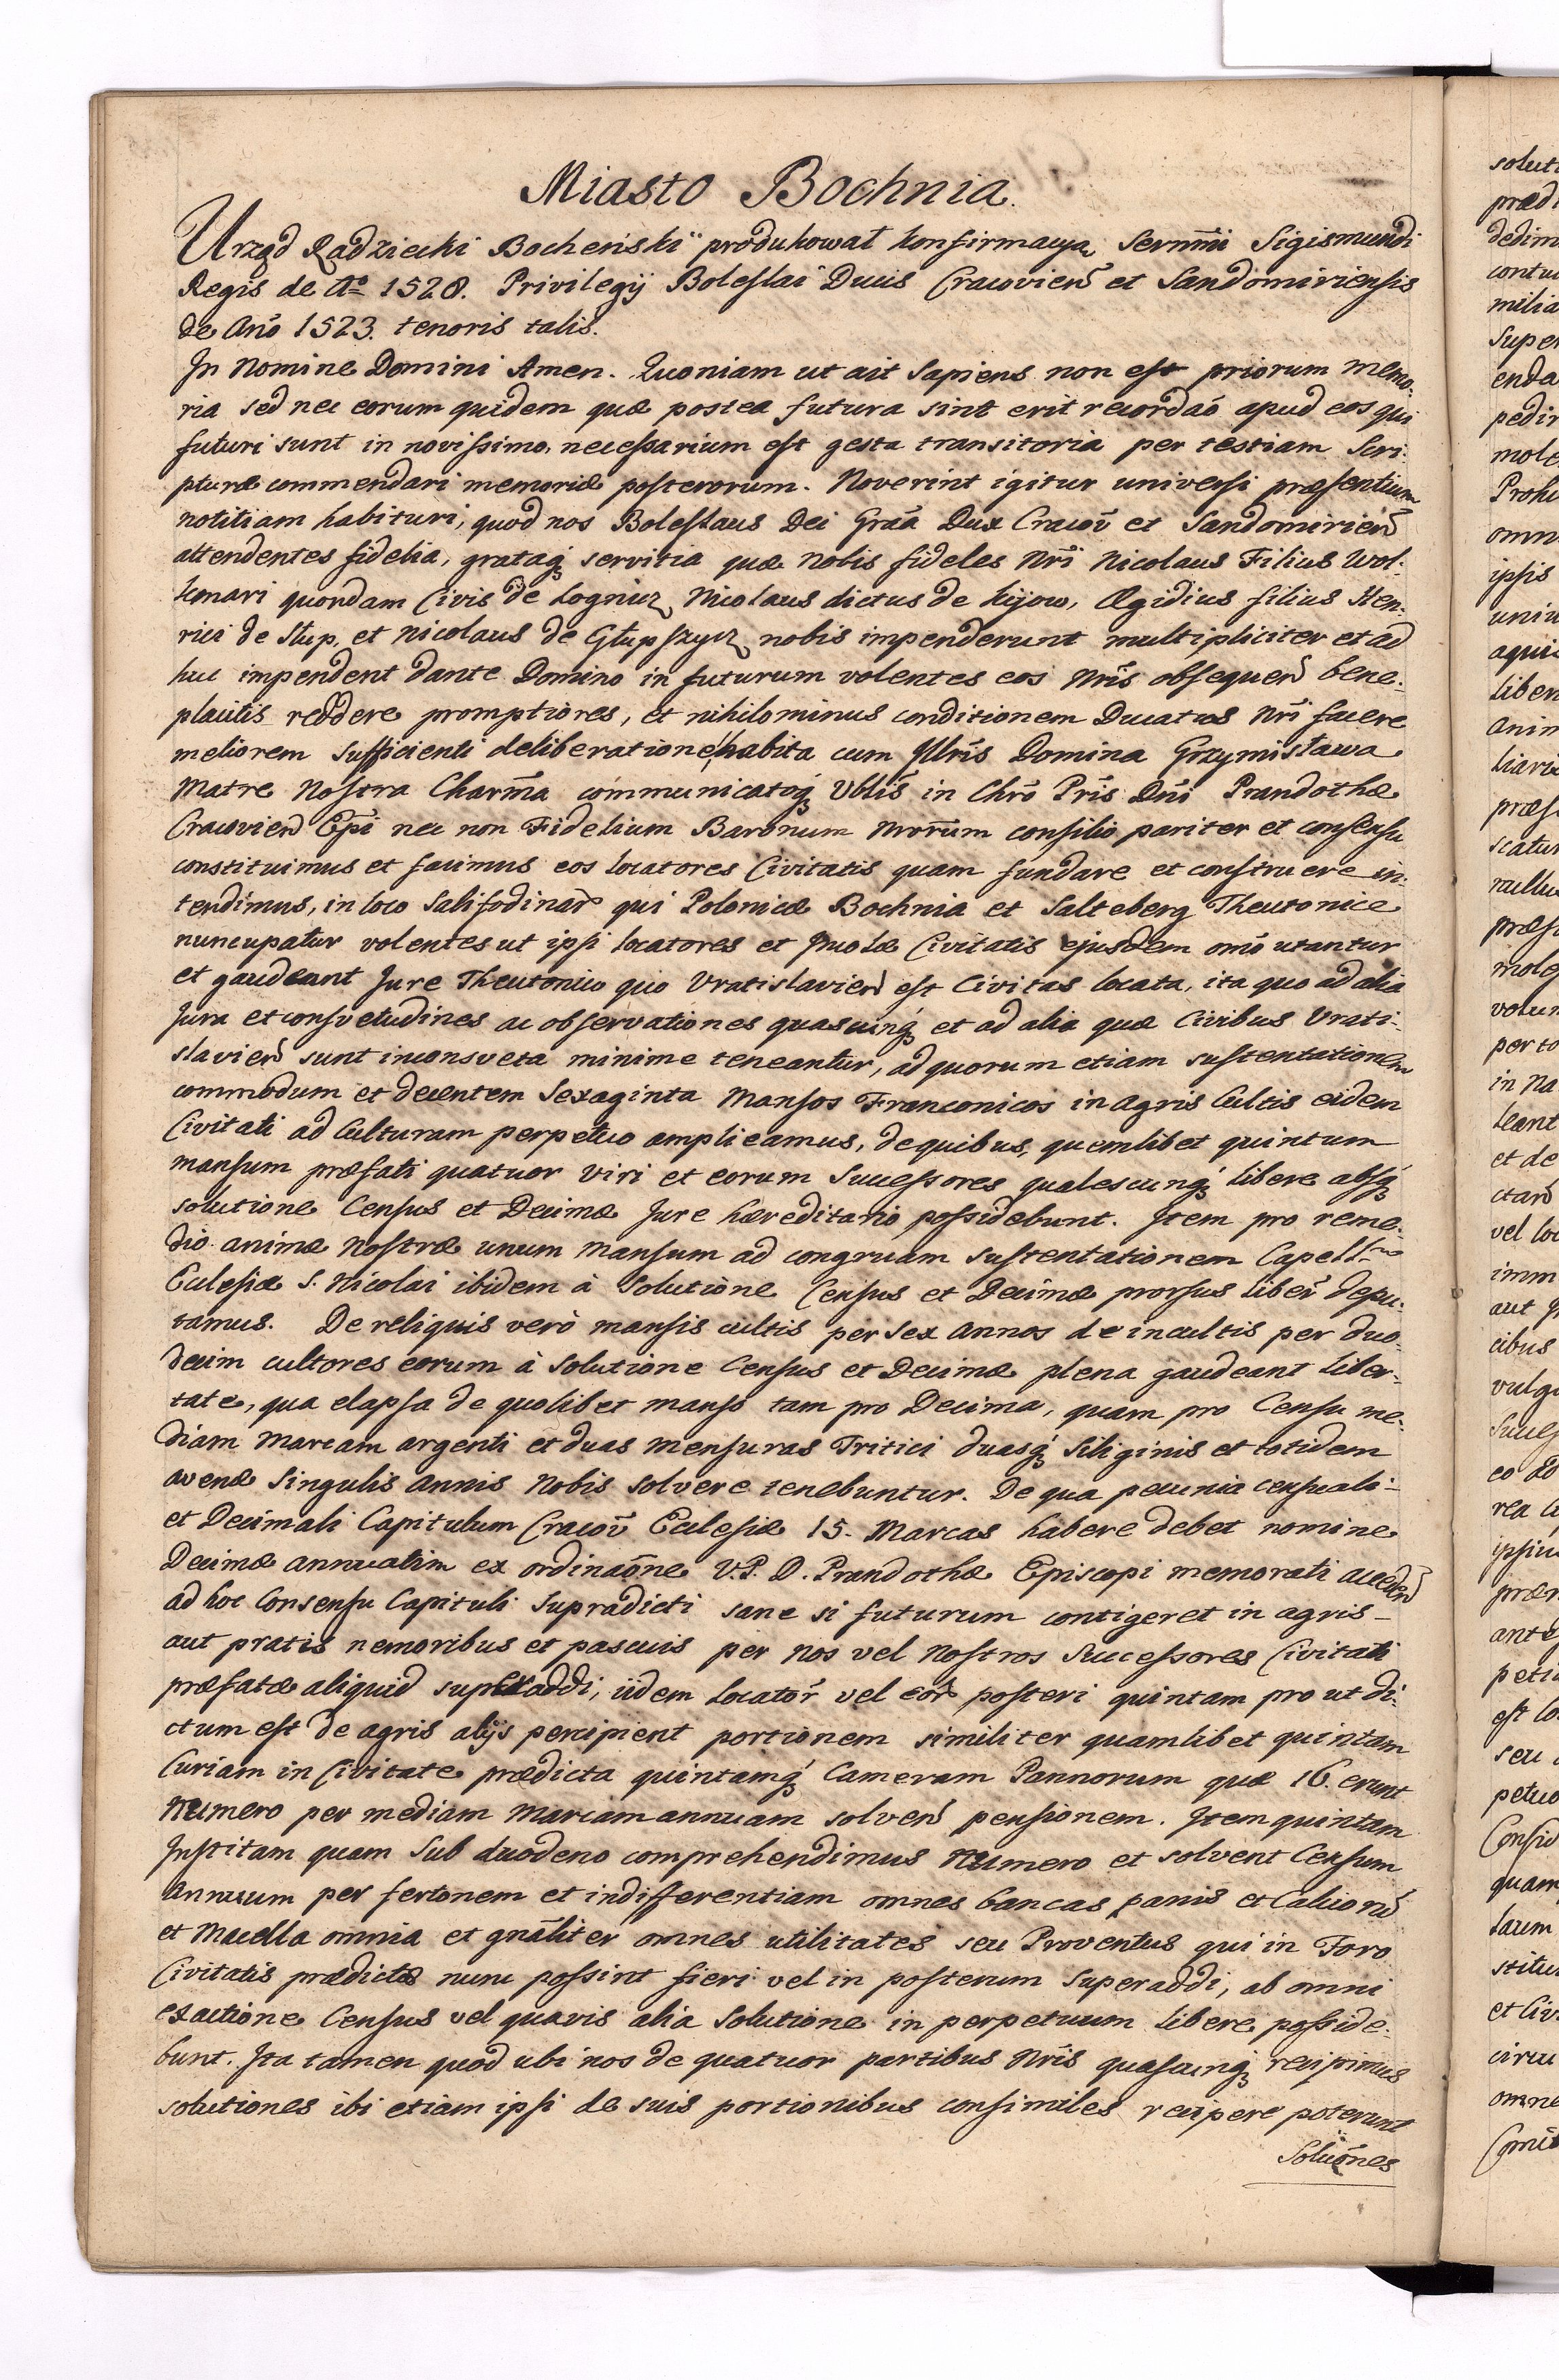 Miasto Bochnia.
Urząd Radziecki Bocheński produkował konfirmacyą Sernm̃i Sigismundi
Regis de Aº 1528. Privilegij Boleslai Ducis Cracovien̄ et Sandomiriensis
de Año 1523. tenoris talis.
In Nomine Domini Amen. Quoniam ut ait Sapiens non est priorum memo-
ria sed nec eorum quidem quæ postea futura sint erit recordaõ apud eos qui
futuri sunt in novissimo, necessarium est gesta transitoria per testiam Scri-
pturæ commendari memoriæ posterorum. Noverint igitur universi præsentium
notitiam habituri, quod nos Boleslaus Dei Grãa Dux Cracov̄ et Sandomirien̄
attendentes fidelia, grataq̃ servitia quæ nobis fideles Nr̃i Nicolaus Filius Wol-
kmari quondam Civis de Lognicz, Nicolaus dictus de Kijow, Ægidius filius Hen-
rici de Stup, et Nicolaus de Głupszycz nobis impenderunt multipliciter et ad
huc impendent dante Domino in futurum volentes eos Nr̃is obsequen̄ bene-
placitis reddere promptiores, et nihilominus conditionem Ducatus Nr̃i facere
meliorem sufficienti deliberatione habita cum Illr̃is Domina Grzymisława
Matre Nostra Charm̃a communicatoq̃ Vblis̃ in Chrõ Pr̃is Dñi Prandothæ
Cracovien̄ Ep̃i nec non Fidelium Baronum Nrorũm consilio pariter et consensu
constituimus et facimus eos locatores Civitatis quam fundare et construere in-
tendimus, in loco Salifodinar̄ qui Polonicæ Bochnia et Salteberg Theutonice
nuncupatur volentes ut ipsi locatores et Incolæ Civitatis ejusdem om̃o utantur
et gaudeant Jure Theutonico quo Vratislavien̄ est Civitas locata, ita quo ad alia
Jura et consvetudines ac observationes quascunq̃ et ad alia quæ Civibus Vrati-
slavien̄ sunt inconsveta minime teneantur, ad quorum etiam sustentationem
commodum et decentem Sexaginta Mansos Franconicos in agris Cultis eidem
Civitati ad Culturam perpetuo amplicamus, de quibus, quemlibet quintum
mansum præfati quatuor Viri et eorum Successores qualescunq̃ libere absq̃
solutione Census et Decimæ Jure hæreditario possidebunt. Item pro reme-
dio animæ Nostræ unum Mansum ad congruam sustentationem Capell
Eclesiæ S. Nicolai ibidem à Solutione Census et Decimæ prorsus liber̄ depu-
tamus. De reliquis verò mansis cultis per Sex Annos de incultis per duo-
decim cultores eorum à Solutione Census et Decimæ plena gaudeant liber-
tate, qua elapsa de quolibet manso tam pro Decima, quam pro Censu me-
diam Marcam argenti et duas mensuras Tritici duasq̃ Siliginis et totidem
avenæ Singulis Annis Nobis Solvere tenebuntur. De qua pecunia censuali-
et Decimali Capitulum Cracov̄ Eclesiæ 15. Marcas habere debet nomine
Decimæ annuatim ex ordinaõne V.P.D. Prandothæ Episcopi memorati acceden̄
ad hoc Consensu Capituli Supradicti sane si futurum contigeret in agris-
aut pratis nemoribus et pascuis per Nos vel Nostros Successores Civitati
præfatæ aliquid superaddi, iidem Locator̄ vel eor̄ posteri quintam pro ut di-
ctum est de agris alijs percipient portionem similiter quamlibet quintam
Curiam in Civitate prædicta quintamq̃ Cameram Pannorum quæ 16. erunt
Numero per mediam Marcam annuam solven̄ pensionem. Item quintam
Institam quam Sub duodeno comprehendimus Numero et solvent Censum
Annuum per fertonem et indifferentiam omnes bancas panis et Calceorũ
et Macella omnia et gnãliter omnes utilitates seu Proventus qui in Foro
Civitatis prædictæ nunc possint fieri vel in posterum Superaddi, ab omni
exactione Census vel quavis alia Solutione in perpetuum libere posside-
bunt. Ita tamen quod ubi nos de quatuor partibus Nr̃is quascunq̃ recipimus
solutiones ibi etiam ipsi de suis portionibus consimiles recipere poterunt
Soluõnes